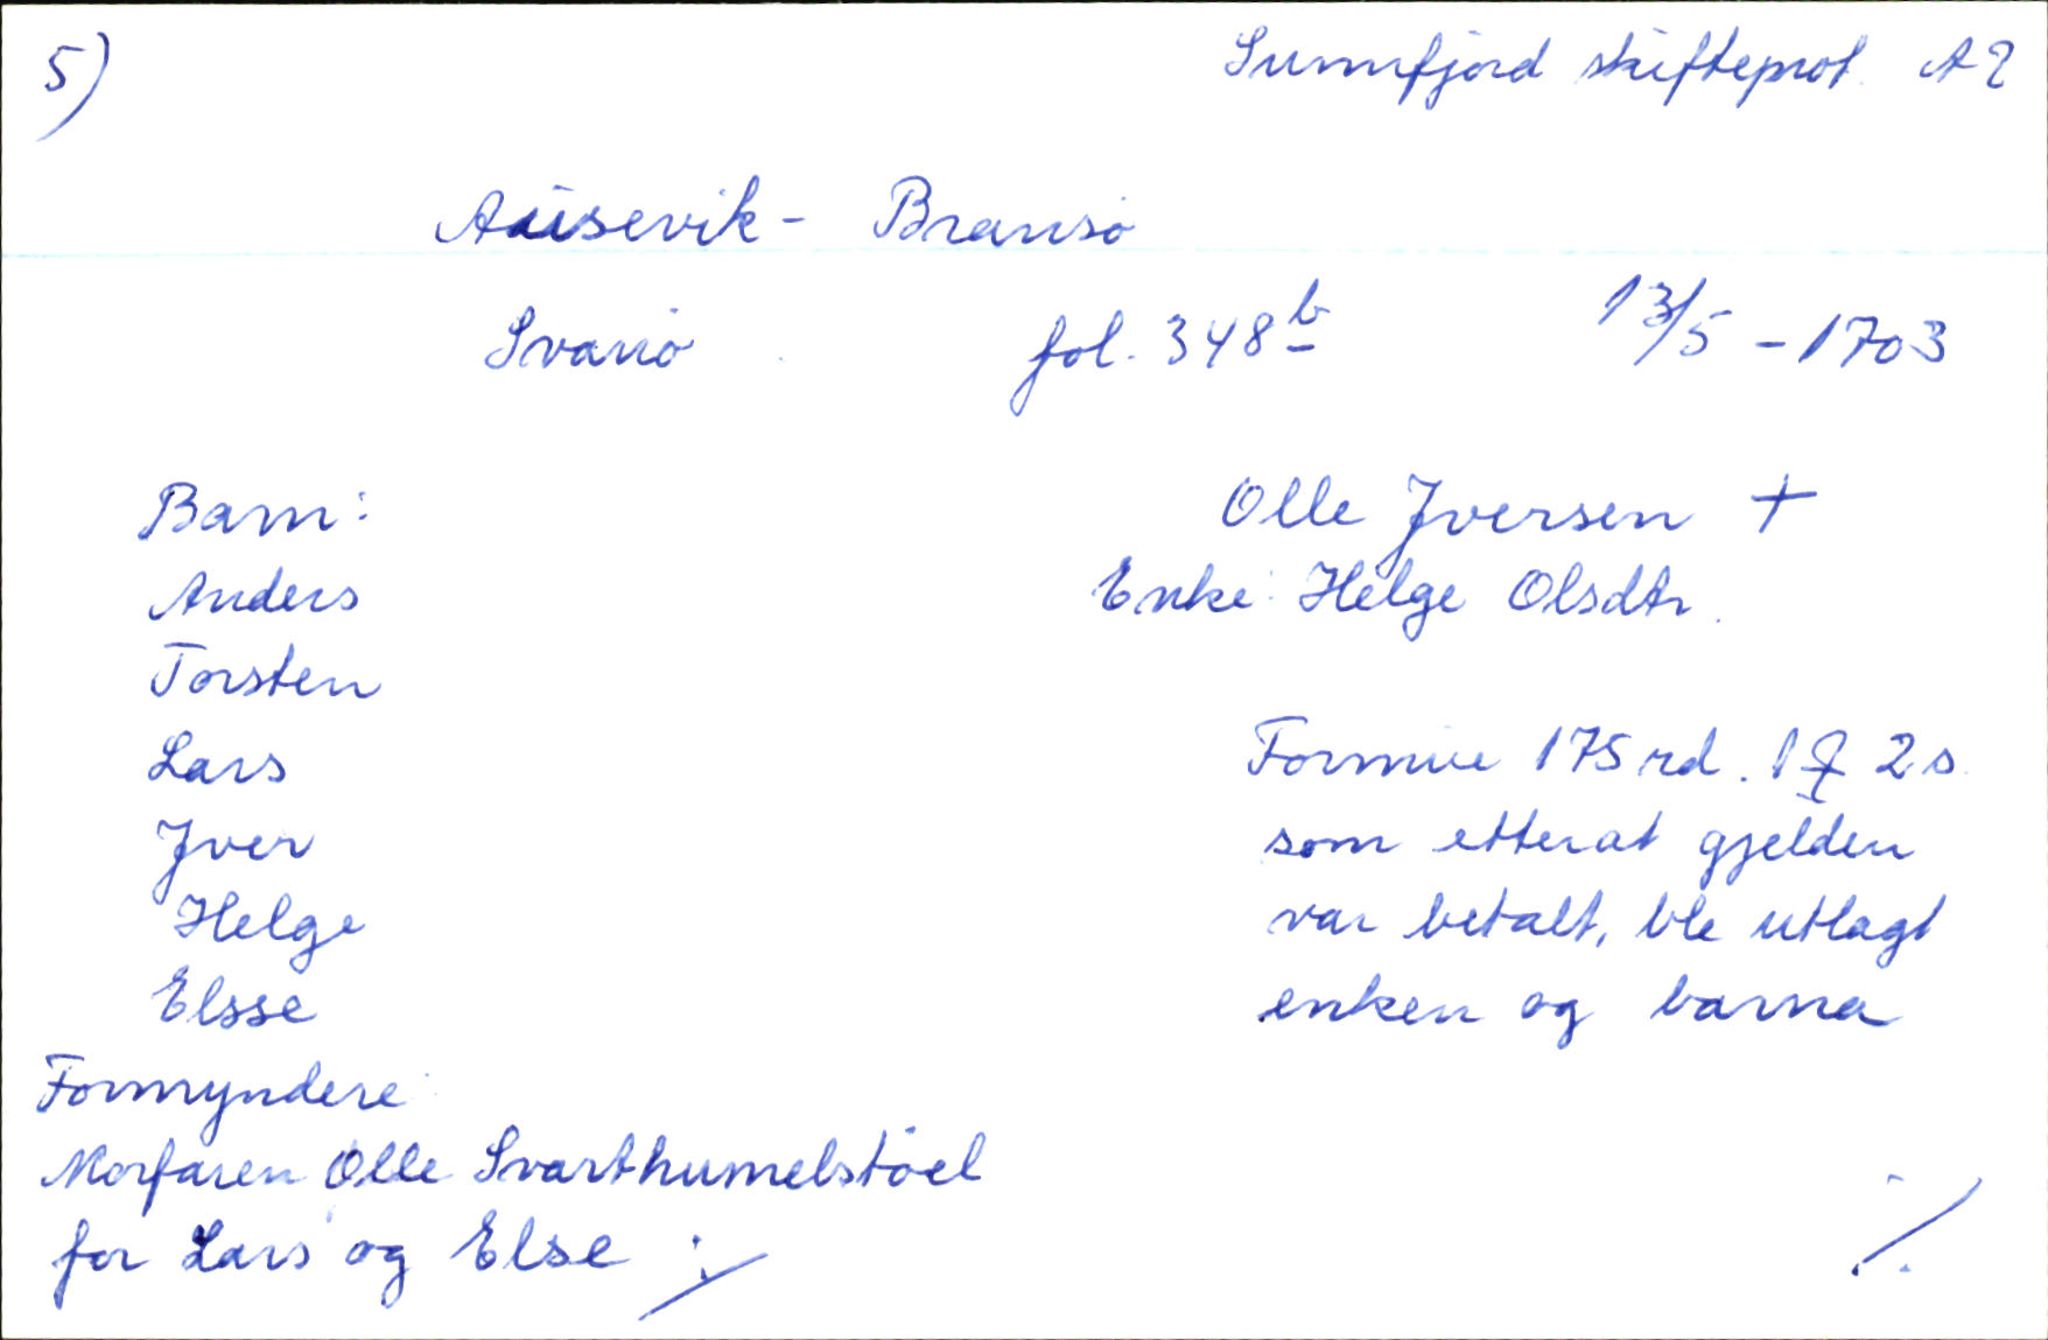 5)
Sunnfjord skifteprot. A 2
Ausevik - Bransø
Svanø fol. 348 b 13/5 - 1703
Barn: Olle Jversen +
Anders Enke: Helge Olsdtr.
Torsten
Lars Formue 175 rd. 1 2 s
Jver som etterat gjelden
Helge var betalt, ble utlagt
Elsse enken og barna
Formyndere:
Morfaren Olle Svarthumelstøel
for Lars og Else ./.
./.